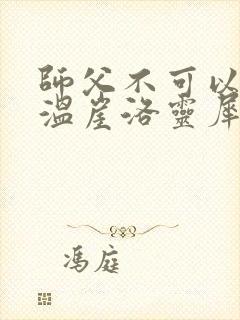 師父不可以
溫崖洛靈犀
馮庭